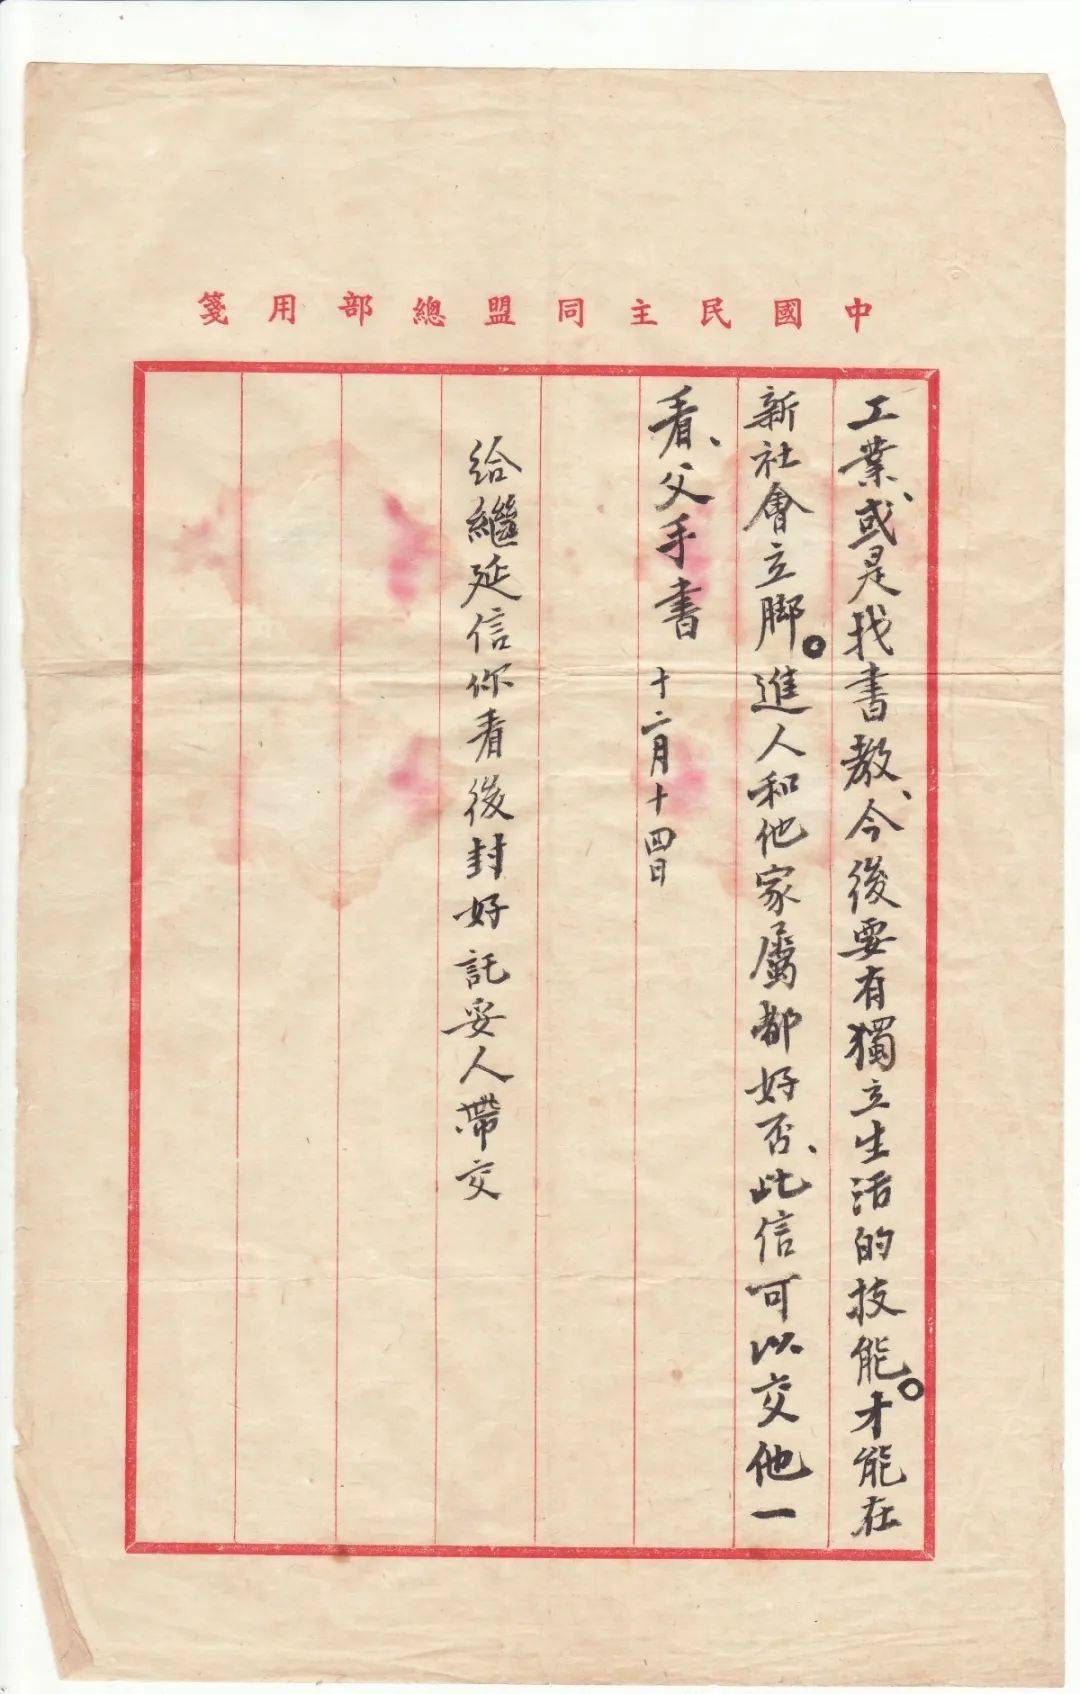 中國民主同盟總部用箋
工業、或是找書教、今後要有獨立生活的技能。才能在
新社會立脚。進人和他家屬都好否、此信可以交他一
看、父手書 十二月十四日
給繼延信你看後封好託妥人帶交